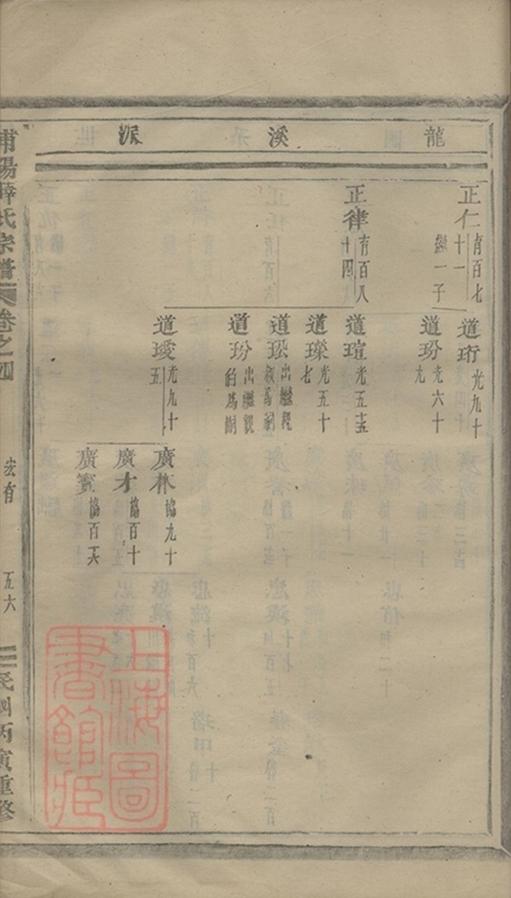 龍溪派
正仁 有百七十一
繼一子
道珩 光九十
道玢 光六十九
正律 有百八十四
道瑄 光五十五
道璨 光五十七
道玜 出繼
道玢 出繼
道璦 光九十五
廣林 協九十
廣才 協百十
廣寶 協百六
浦陽薛氏宗譜
卷之四
五六
民国丙寅重修
上海圖書館藏